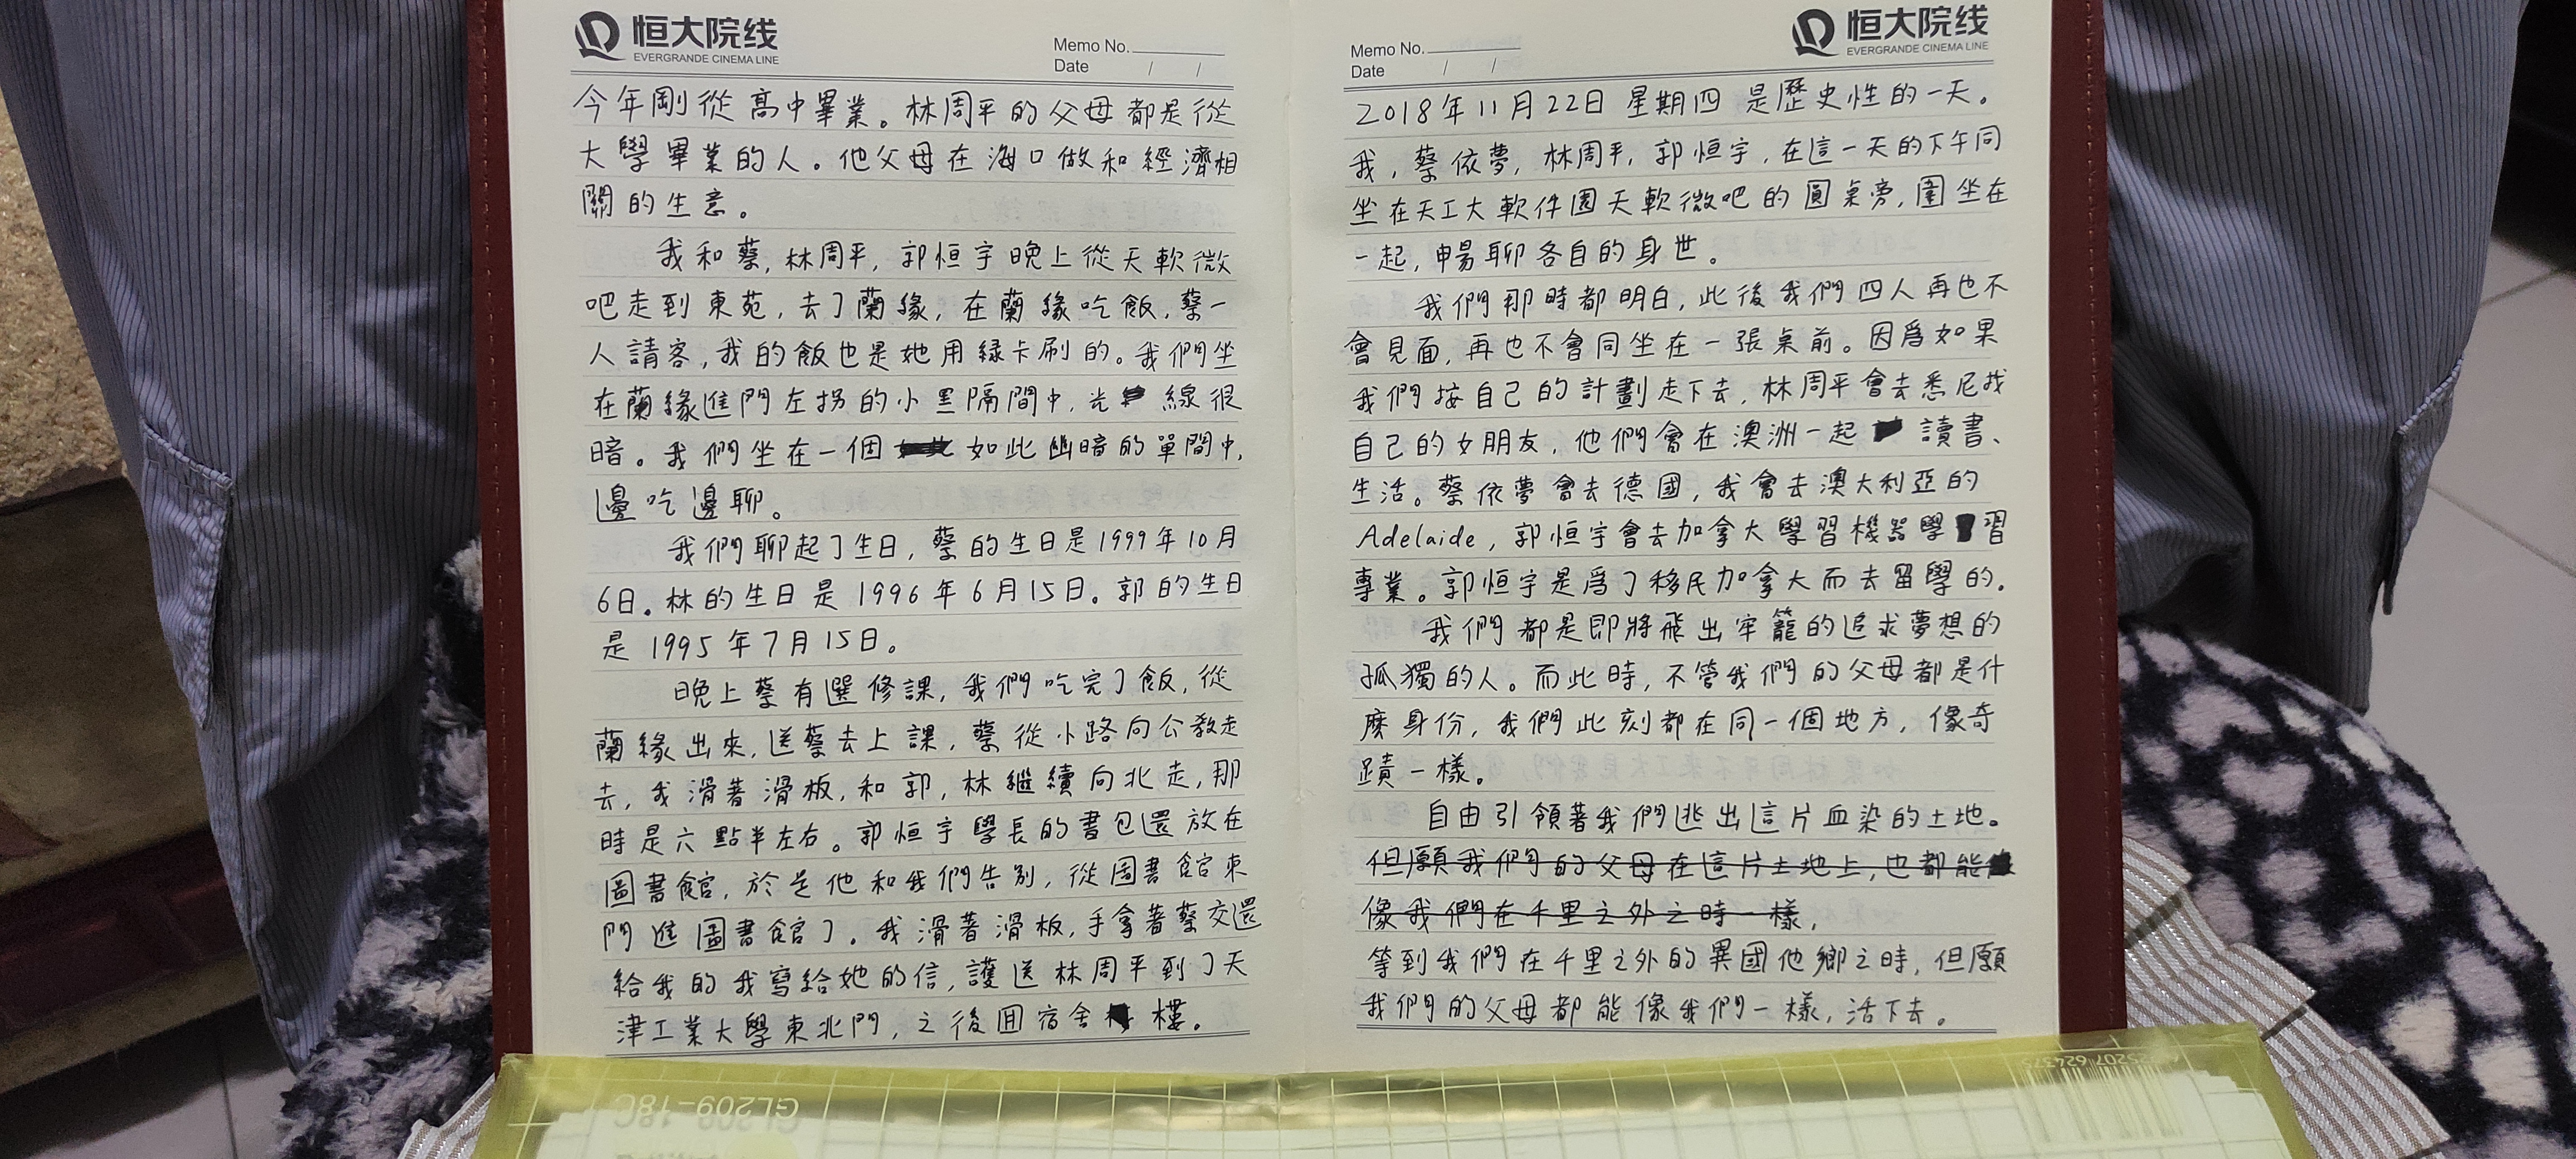 恒大院线
EVERGRANDE CINEMA LINE
Memo No.
Date / /
今年剛從高中畢業。林周平的父母都是從
大學畢業的人。他父母在海口做和經濟相
關的生意。
我和蔡,林周平,郭恒宇晚上從天軟微
吧走到東苑,去了蘭緣,在蘭緣吃飯,蔡一
人請客,我的飯也是她用綠卡刷的。我們坐
在蘭緣進門左拐的小黑隔間中,光線很
暗。我們坐在一個如此幽暗的單間中,
邊吃邊聊。
我們聊起了生日,蔡的生日是1999年10月
6日。林的生日是1996年6月15日。郭的生日
是1995年7月15日。
晚上蔡有選修課,我們吃完了飯,從
蘭緣出來,送蔡去上課,蔡從小路向公教走
去,我滑著滑板,和郭,林繼續向北走,那
時是六點半左右。郭恒宇學長的書包還放在
圖書館,於是他和我們告別,從圖書館東
門進圖書館了。我滑著滑板,手拿著蔡交還
給我的我寫給她的信,護送林周平到了天
津工業大學東北門,之後回宿舍樓。
Memo No.
Date / /
恒大院线
EVERGRANDE CINEMA LINE
2018年11月22日 星期四 是歷史性的一天。
我,蔡依夢,林周平,郭恒宇,在這一天的下午同
坐在天工大軟件園天軟微吧的圓桌旁,圍坐在
一起,暢聊各自的身世。
我們那時都明白,此後我們四人再也不
會見面,再也不會同坐在一張桌前。因爲如果
我們按自己的計劃走下去,林周平會去悉尼找
自己的女朋友,他們會在澳洲一起讀書、
生活。蔡依夢會去德國,我會去澳大利亞的
Adelaide,郭恒宇會去加拿大學習機器學習
專業。郭恒宇是爲了移民加拿大而去留學的。
我們都是即將飛出牢籠的追求夢想的
孤獨的人。而此時,不管我們的父母都是什
麽身份,我們此刻都在同一個地方,像奇
蹟一樣。
自由引領著我們逃出這片血染的土地。
但願我們的父母在這片土地上,也都能
像我們在千里之外之時一樣,
等到我們在千里之外的異國他鄉之時,但願
我們的父母都能像我們一樣,活下去。
GL209-18C